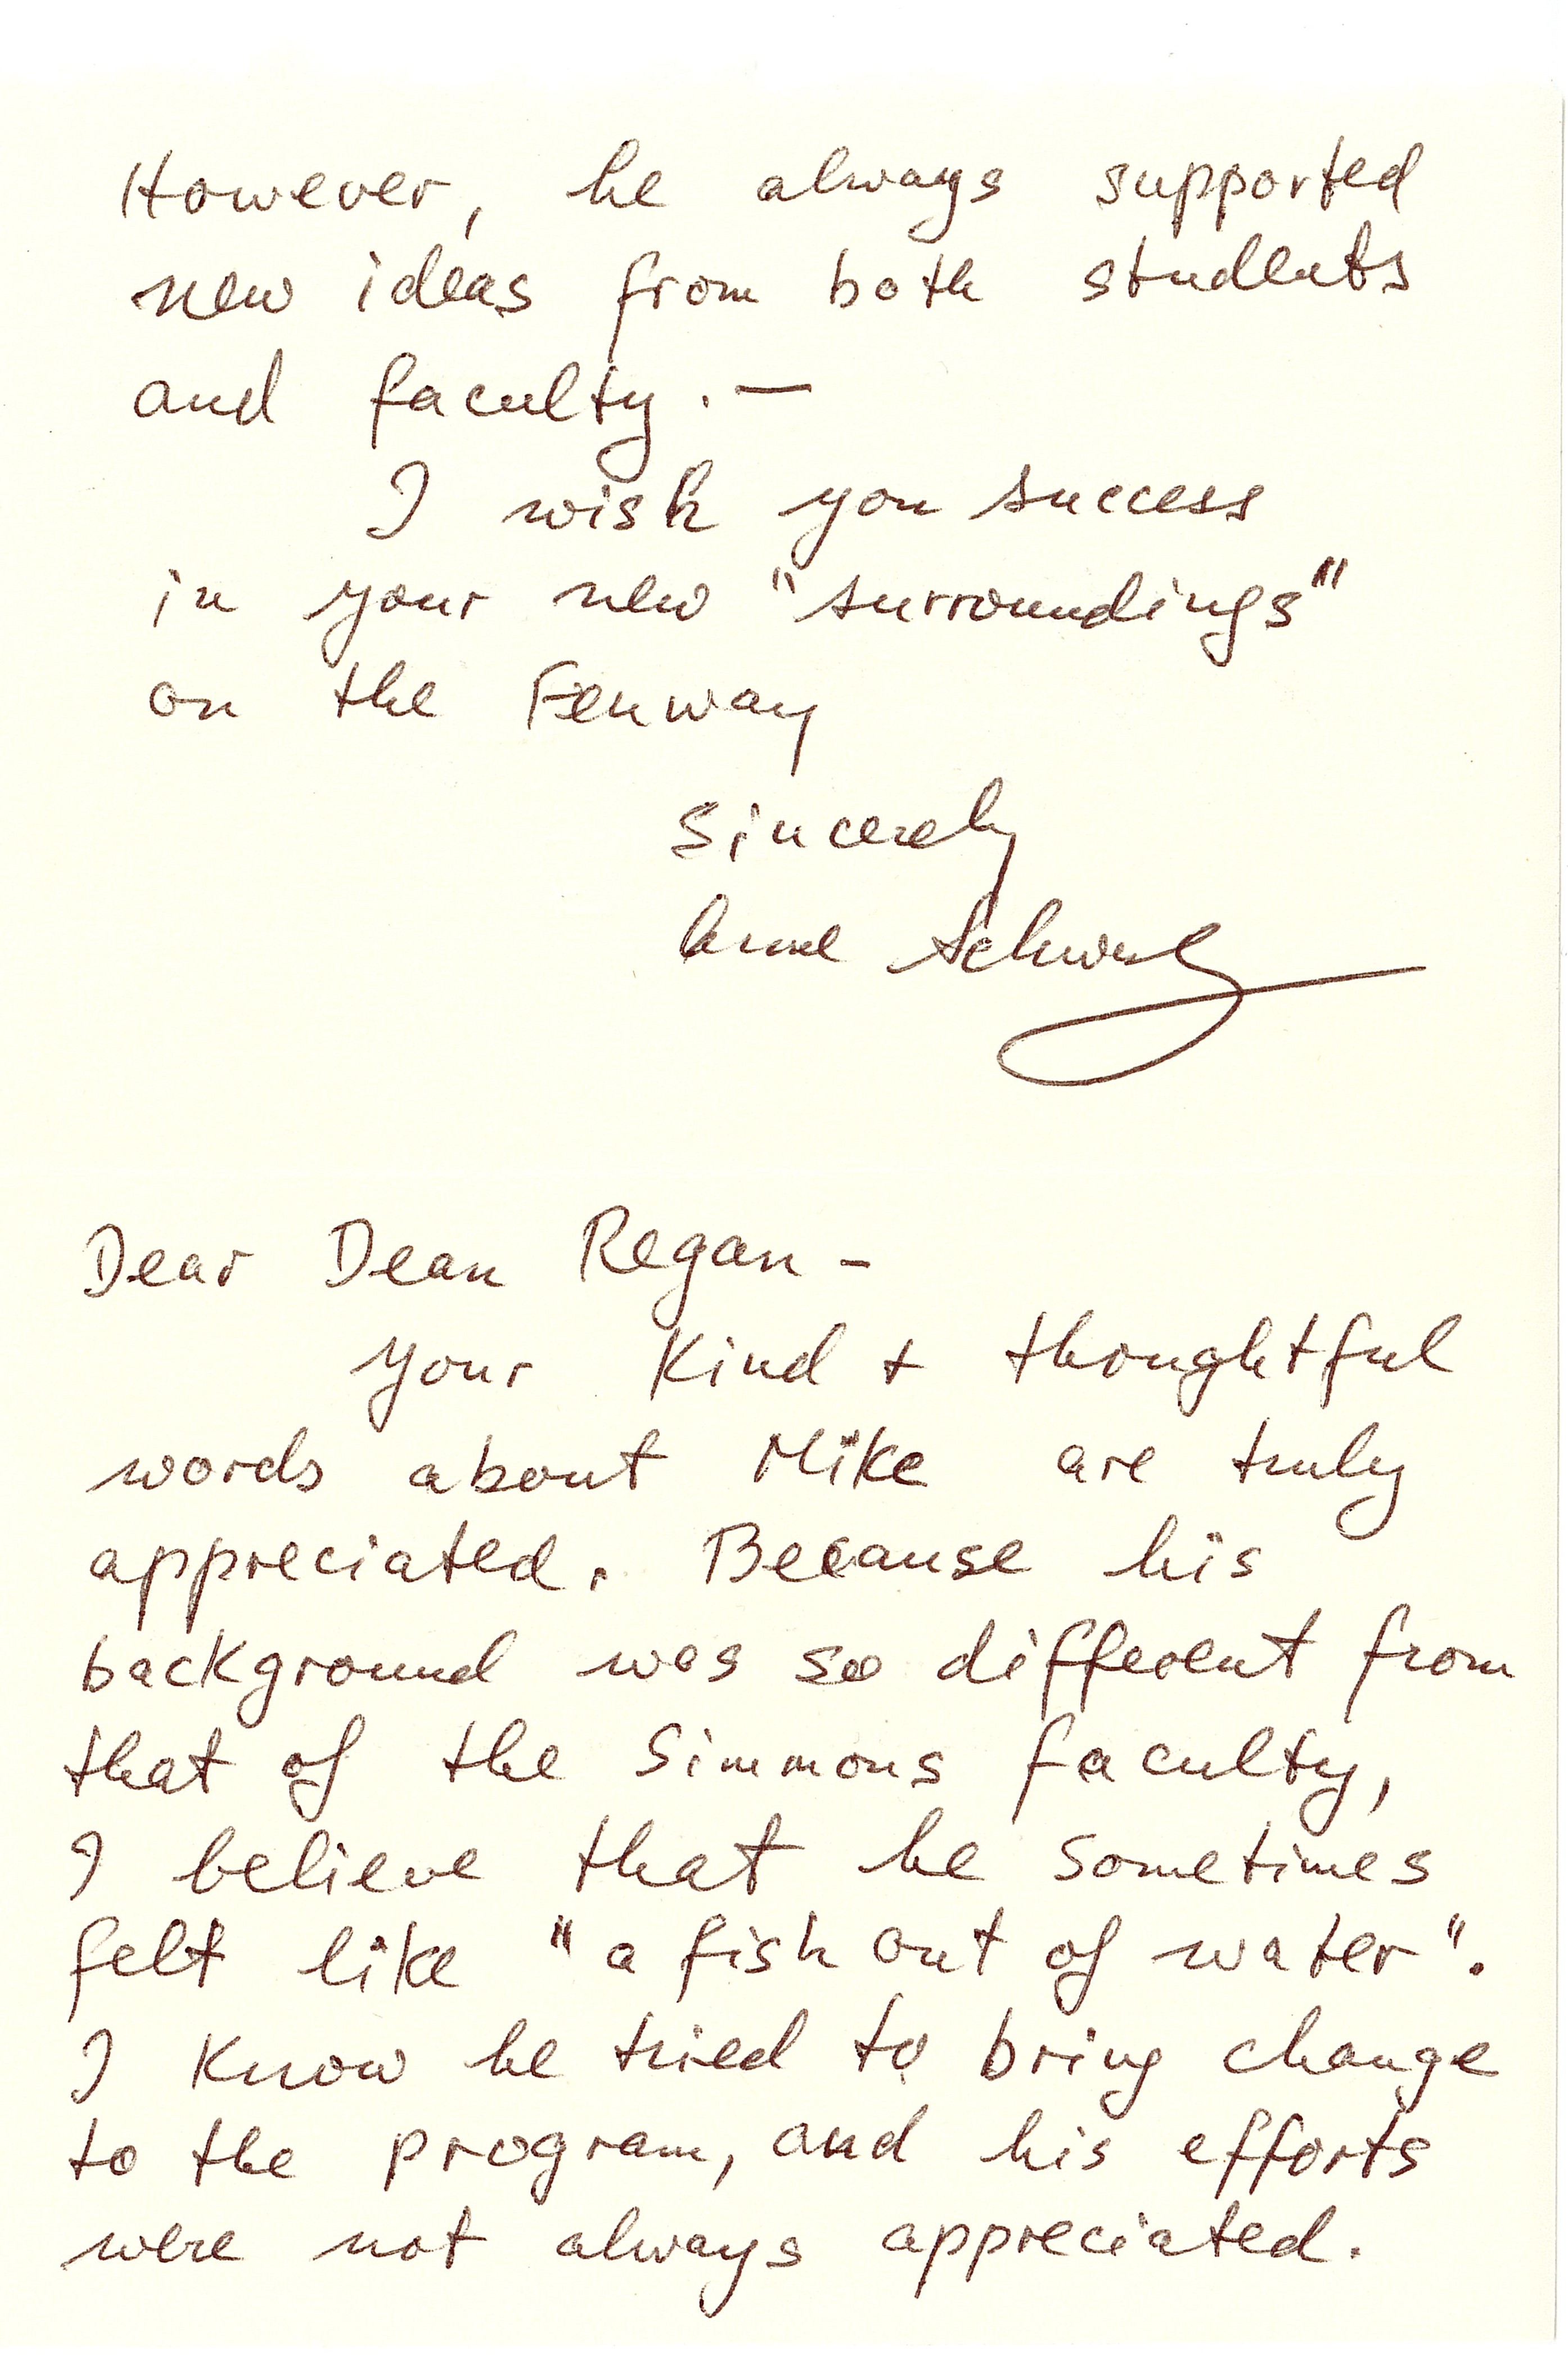 However, he always supported
new ideas from both students
and faculty. —
I wish you success
in your new "surroundings"
on the Fenway
Sincerely
Dear Dean Regan -
Your kind + thoughtful
words about Mike are truly
appreciated. Because his
background was so different from
that of the Simmons faculty,
I believe that he sometimes
felt like "a fish out of water".
I know he tried to bring change
to the program, and his efforts
were not always appreciated.